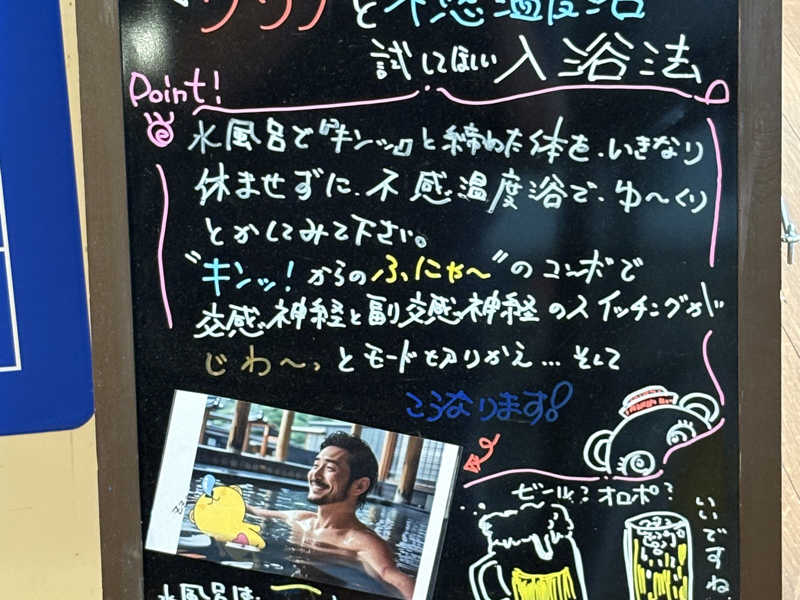 と不感温度浴
試してほしい入浴法
Point!
水風呂で『キンッ』と締めた体を、いきなり
休ませずに、不感温度浴で、ゆ〜くり
とかしてみて下さい。
"キンッ!からのふにゃ〜"のコンボで
交感神経と副交感神経のスイッチングが
じわ〜っとモード切りかえ…そして
こうなります!
ビール?オロポ?
いいですね
水風呂は、